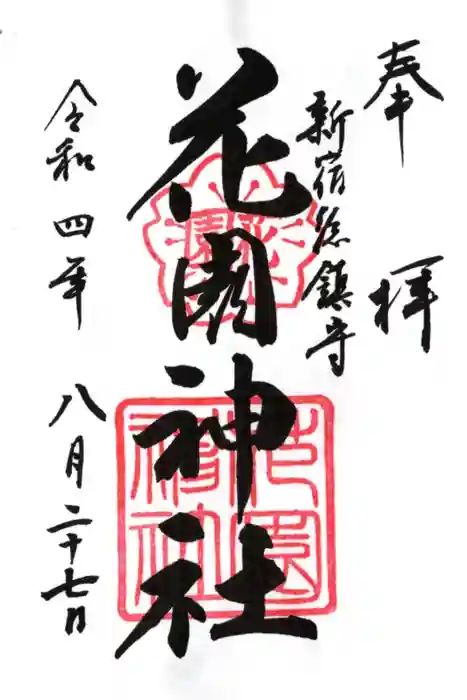 奉拝
新宿総鎮守
花園神社
令和四年八月二十七日
花園
花園神社